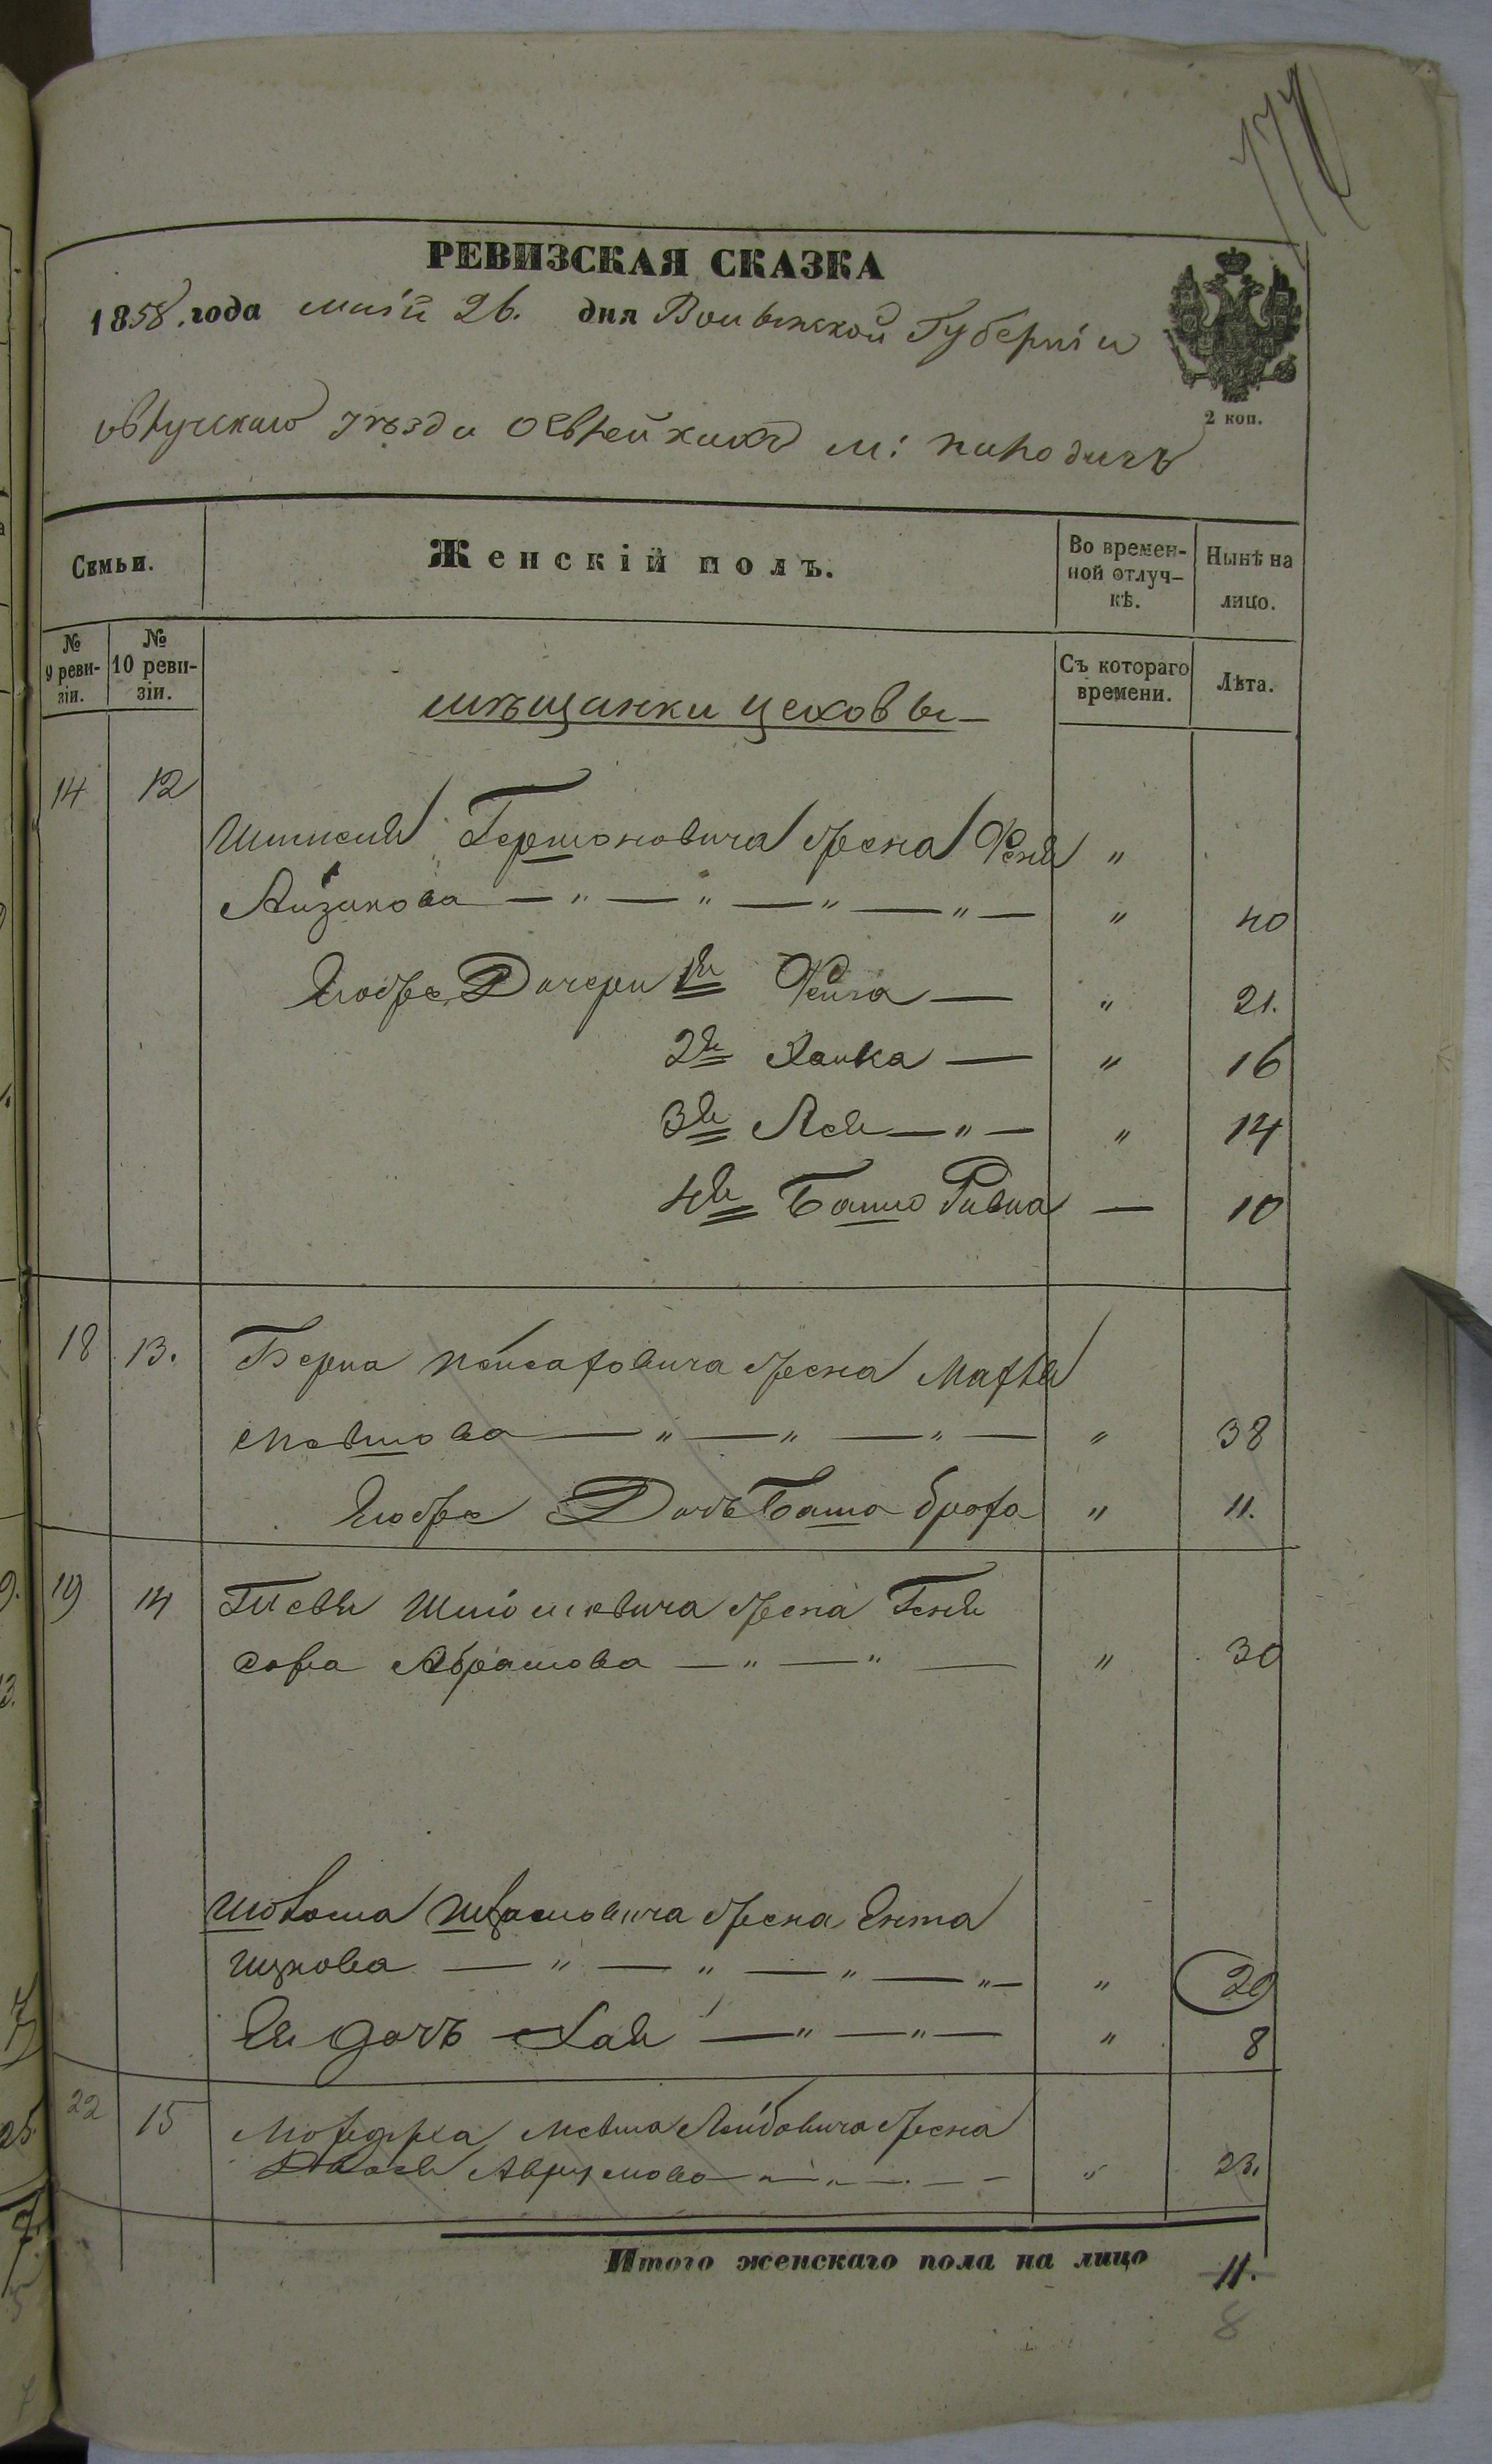 РЕВИЗСКАЯ СКАЗКА
1858. года маій 26. дня Волынской Губерніи
овручскаго уѣзда о Еврейкахъ м: народичъ
2 коп.
Семьи.
Женскій полъ.
Во времен-
ной отлуч-
кѣ.
Нынѣ на
лицо.
№
9 реви-
зіи.
№
10 реви-
зіи.
Съ котораго
времени.
Лѣта.
мѣщанки цеховы
14 12
Гершоновича жена "
Айзикова — " — " — " — " — " 40
Егоже Дочери 1я Фейга — " 21.
2я Хайка — " 16
3я Лея — " — " 14
4я Башо Ривка — 10
18 13. Берка Пейсаховича жена
Мовшова — " — " — " — " 38
Егоже Дочь Баша броха " 11.
19 14 жена Геня
Сора Абрамова — " — " — " 30
жена Ента
Ицкова — " — " — " — " — " 20
Ея дочь Хая — " — " — " 8
22 15 Мовша Лейбовича жена
Двося Аврумова — " — " — " 23.
Итого женскаго пола на лицо 11.
8